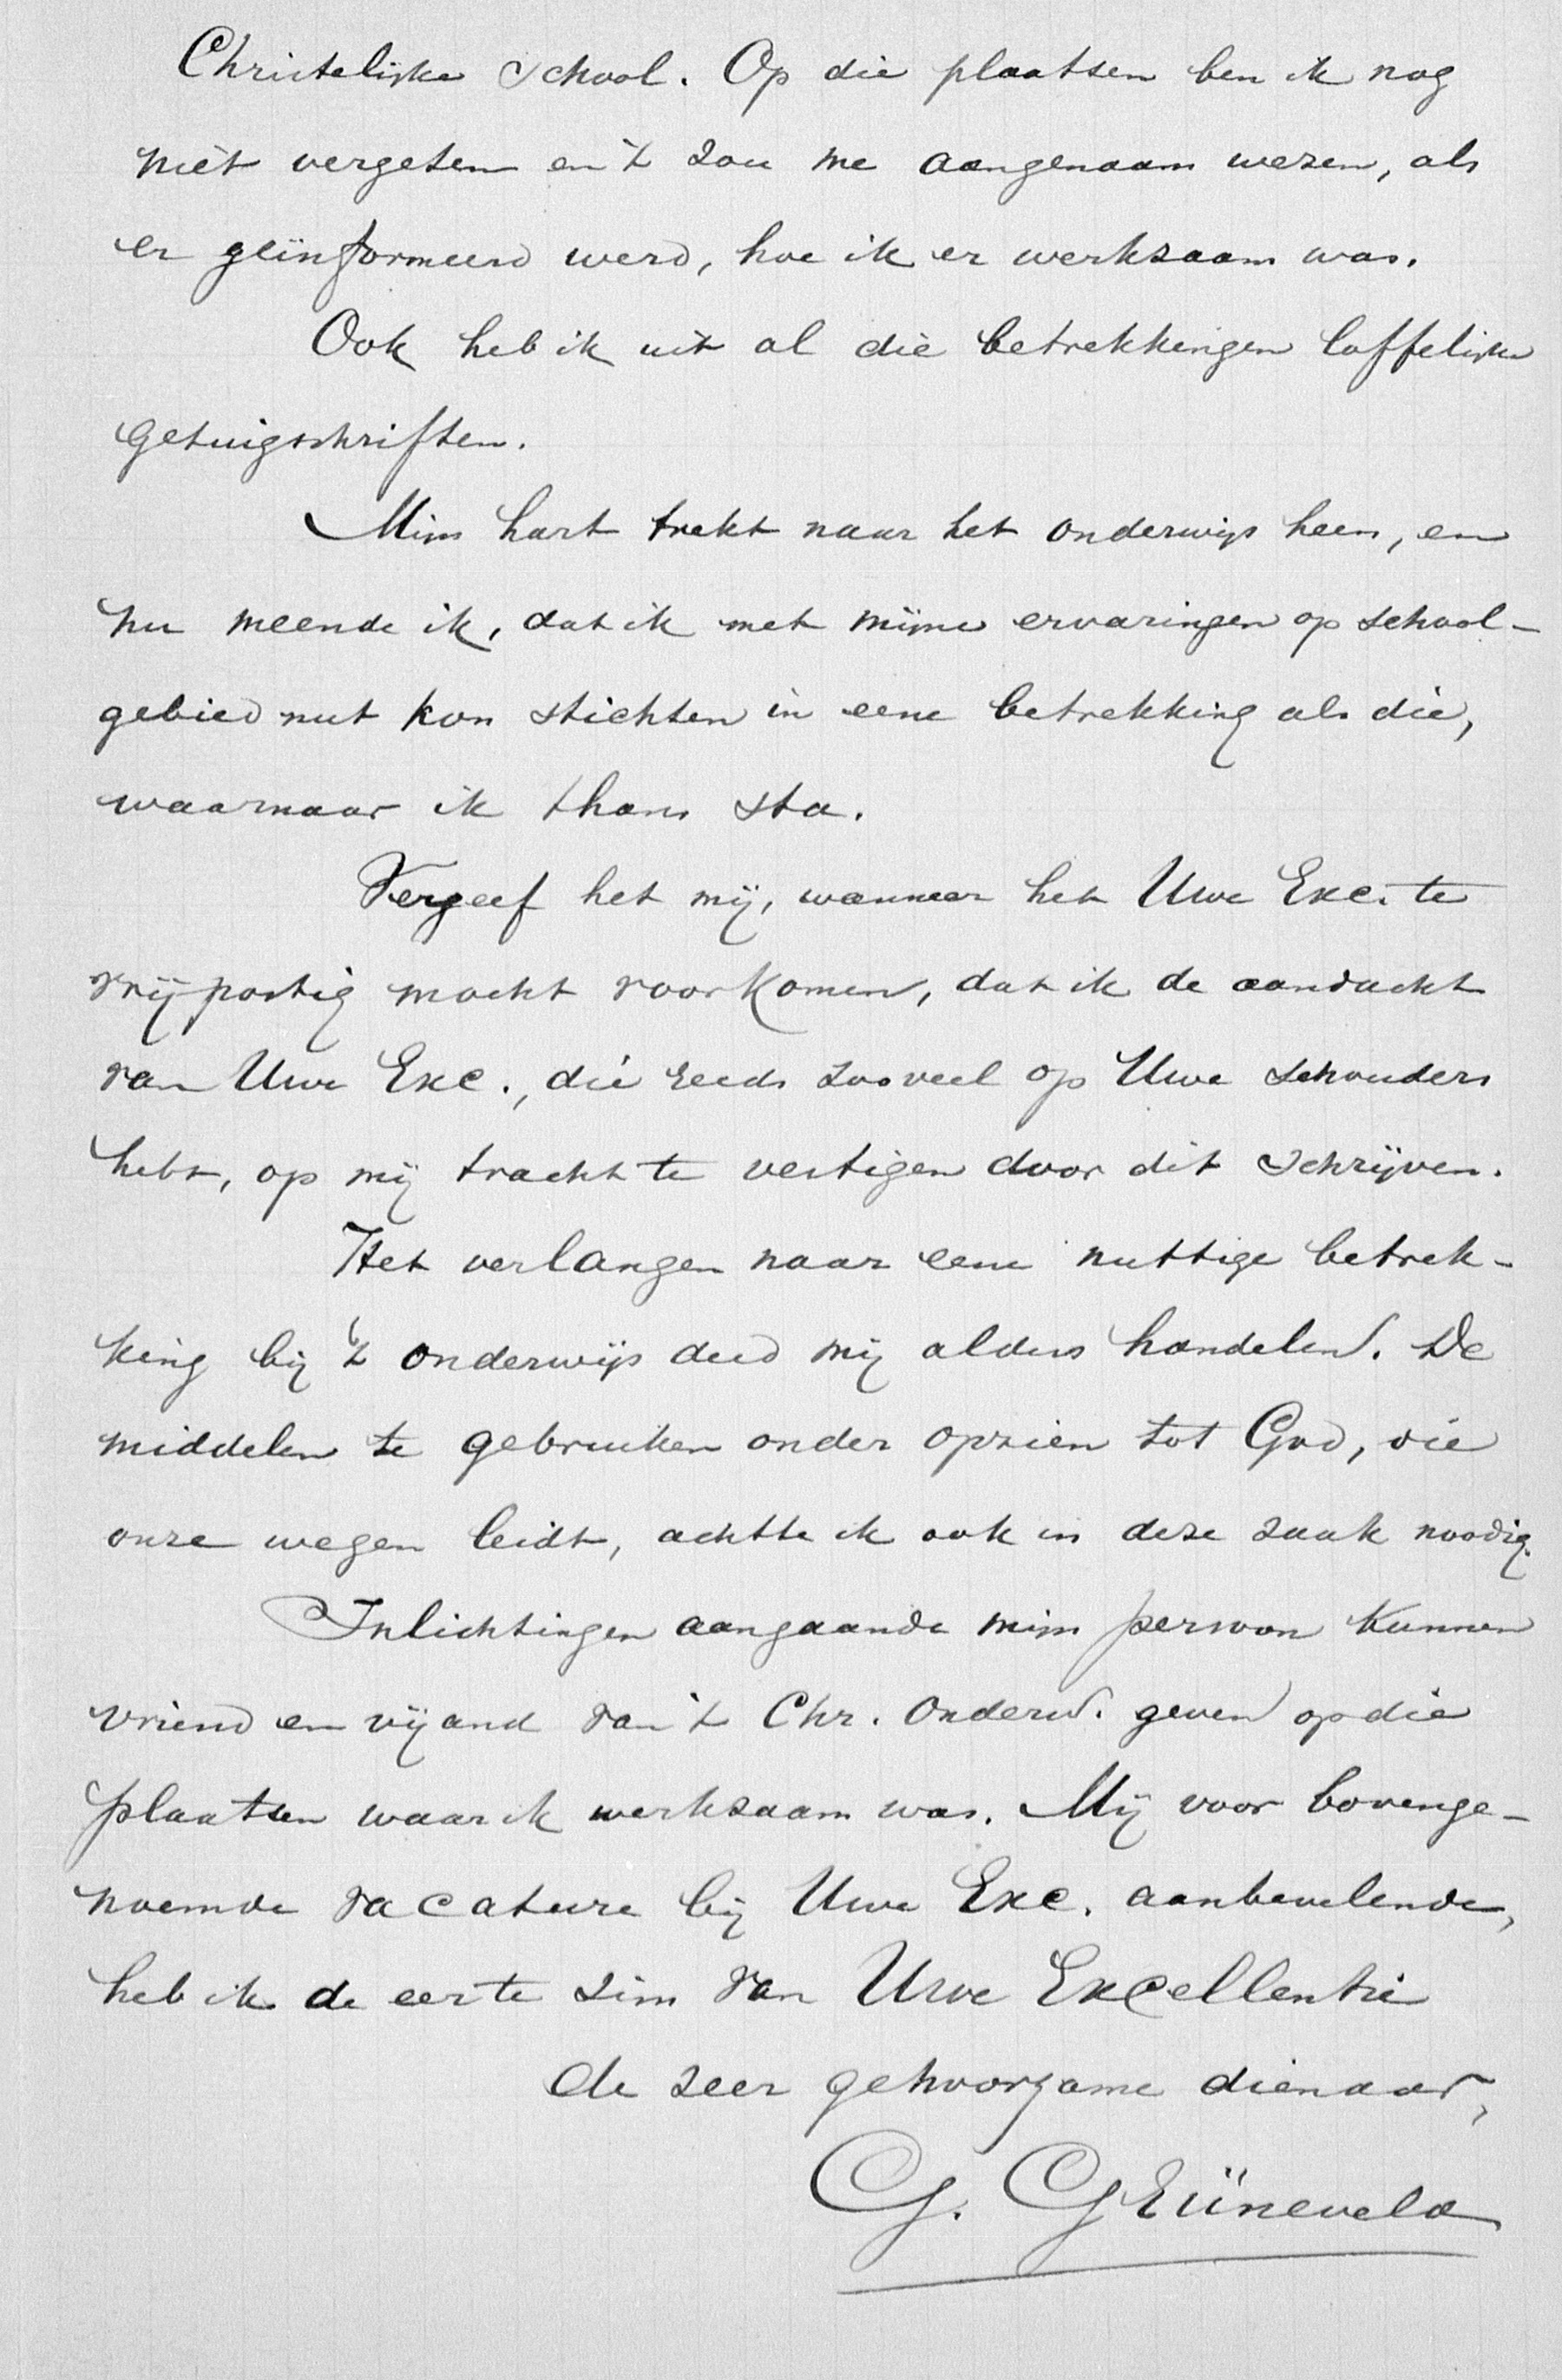 Christelijke School. Op die plaatsen ben ik nog
niet vergeten en 't zou me aangenaam wezen, als
er geïnformeerd werd, hoe ik er werkzaam was.
Ook heb ik uit al die betrekkingen loffelijke
getuigschriften.
Mijn hart trekt naar het onderwijs heen, en
nu meende ik, dat ik met mijne ervaringen op school-
gebied nut kon stichten in eene betrekking als die,
waarnaar ik thans sta.
Vergeef het mij, wanneer het Uwe Exc. te
vrijpostig mocht voorkomen, dat ik de aandacht
van Uwe Exc., die reeds zooveel op Uwe schouders
hebt, op mij tracht te vestigen door dit schrijven.
Het verlangen naar eene nuttige betrek-
king bij 't onderwijs deed mij aldus handelen. De
middelen te gebruiken onder opzien tot God, die
onze wegen leidt, achtte ik ook in deze zaak noodig.
Inlichtingen aangaande mijn persoon kunnen
vriend en vijand van 't Chr. Onderw. geven op die
plaatsen waar ik werkzaam was. Mij voor bovenge-
noemde vacature bij Uwe Exc. aanbevelende,
heb ik de eer te zijn van Uwe Excellentie
de zeer gehoorzame dienaar,
G. Grüneveld